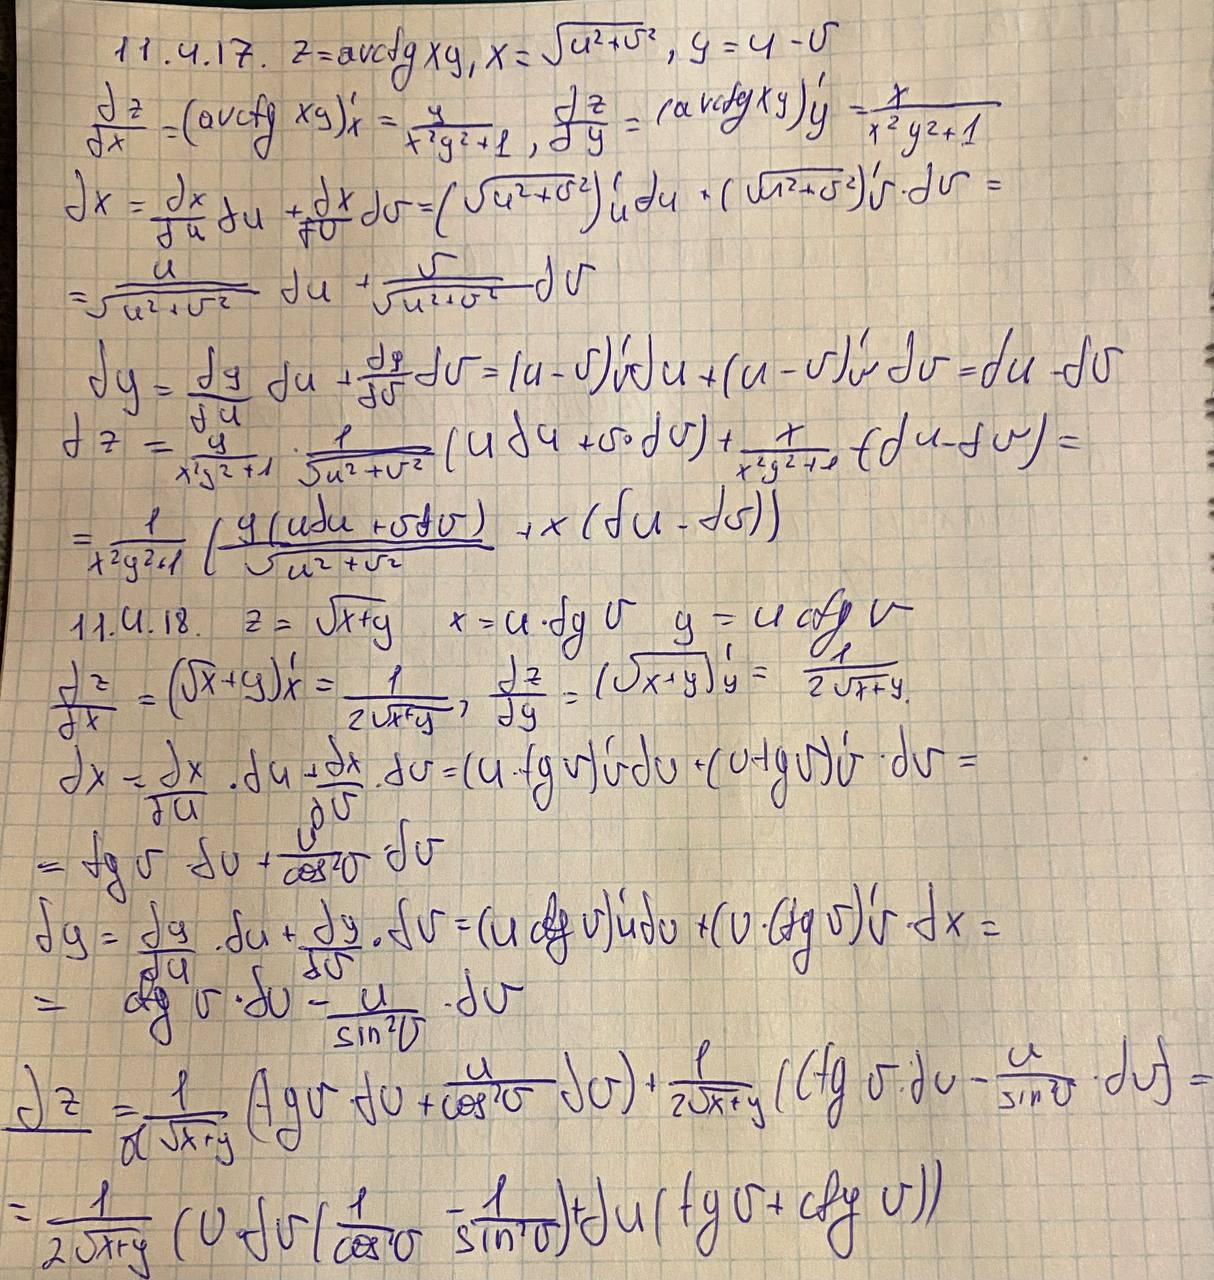 11.4.17. z = arctg xy, x = √(u²+v²), y = u - v
dz/dx = (arctg xy)'x = y/(x²y²+1), dz/dy = (arctg xy)'y = x/(x²y²+1)
dx = dx/du du + dx/dv dv = (√(u²+v²))'u du + (√(u²+v²))'v · dv =
= u/√(u²+v²) du + v/√(u²+v²) dv
dy = dy/du du + dy/dv dv = (u - v)'u du + (u - v)'v dv = du - dv
dz = y/(x²y²+1) · 1/√(u²+v²) (u du + v · dv) + x/(x²y²+1) · (du - dv) =
= 1/(x²y²+1) (y(u du + v dv)/√(u²+v²) + x (du - dv))
11.4.18. z = √(x+y) x = u · tg v y = u ctg v
dz/dx = (√(x+y))'x = 1/(2√(x+y)), dz/dy = (√(x+y))'y = 1/(2√(x+y)).
dx = dx/du · du + dx/dv · dv = (u · tg v)'u du + (u tg v)'v · dv =
= tg v du + u/cos²v · dv
dy = dy/du · du + dy/dv · dv = (u ctg v)'u du + (u · ctg v)'v · dx =
= ctg v · du - u/sin²v · dv
dz = 1/(2√(x+y)) (tg v · du + u/cos²v dv) + 1/(2√(x+y)) (ctg v · du - u/sin²v · dv) =
= 1/(2√(x+y)) (u · dv (1/cos²v - 1/sin²v) + du (tg v + ctg v))